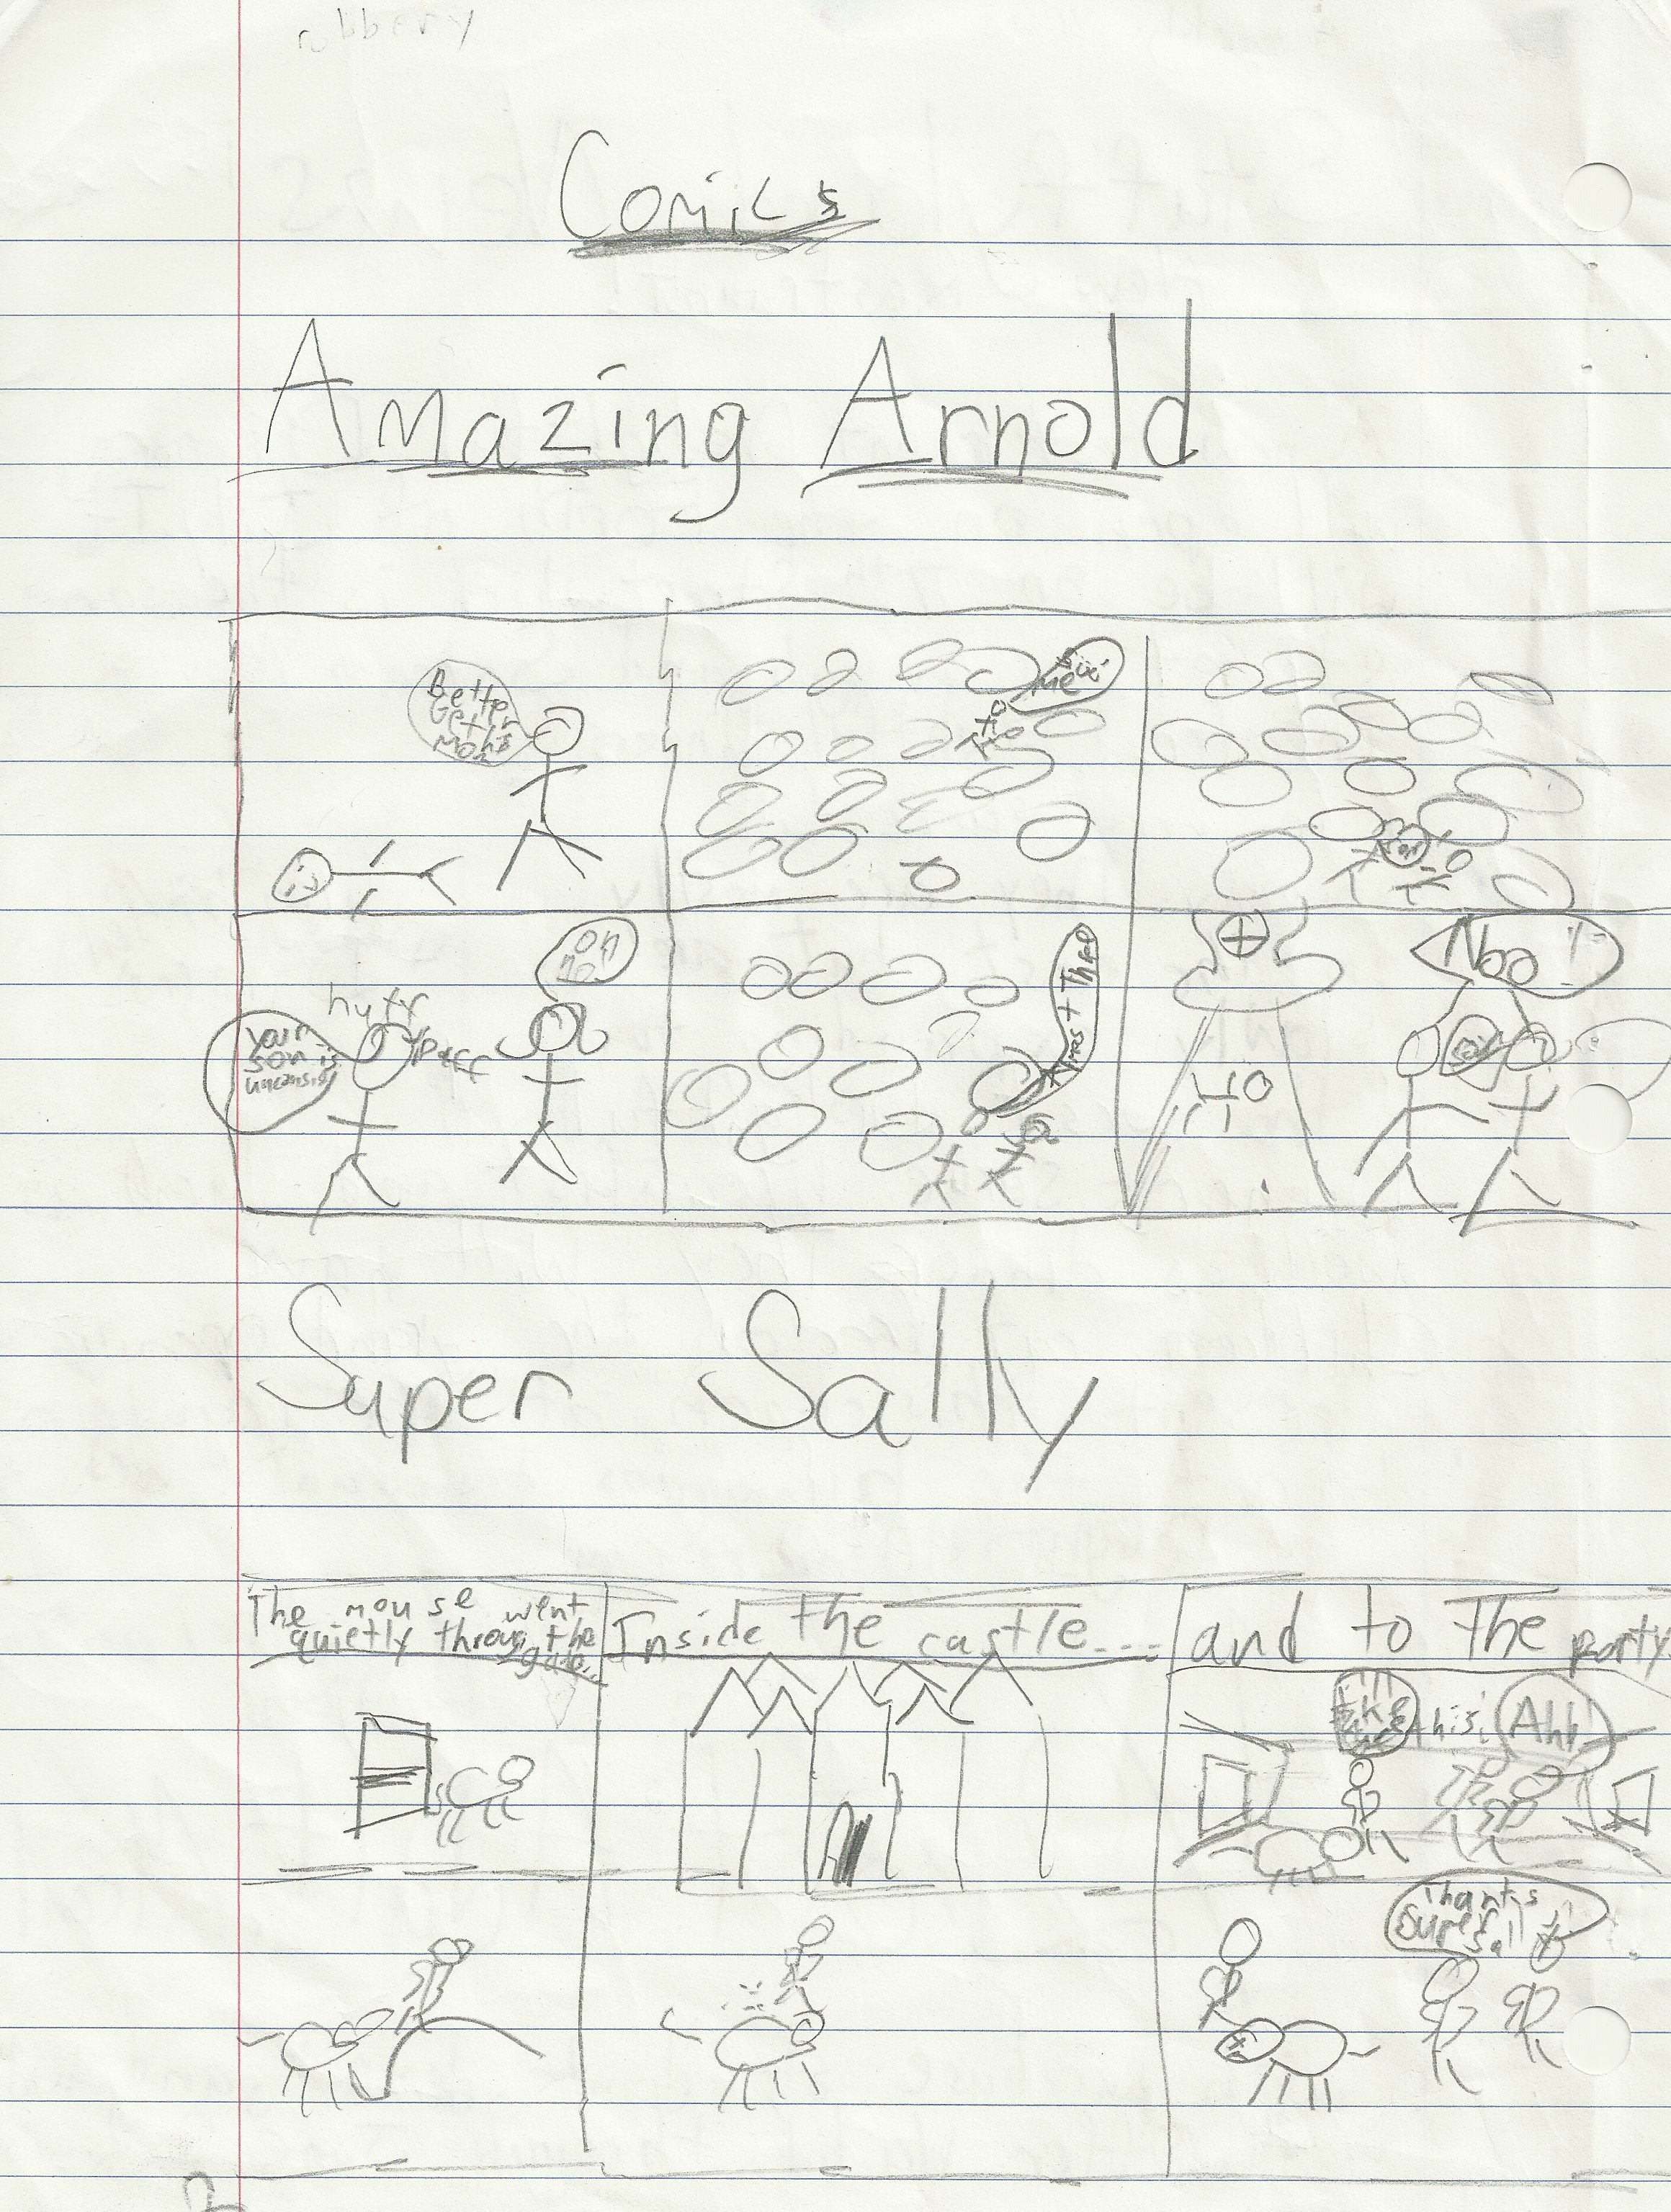 robbery
Comics
Amazing Arnold
Better
get
Mom
me
oh
no
your
son is
puff
Noo!
Super Sally
The mouse went
quietly through the
gate...
Inside the castle...
and to the party
take this!
Ahh
Thanks
Super
Sally